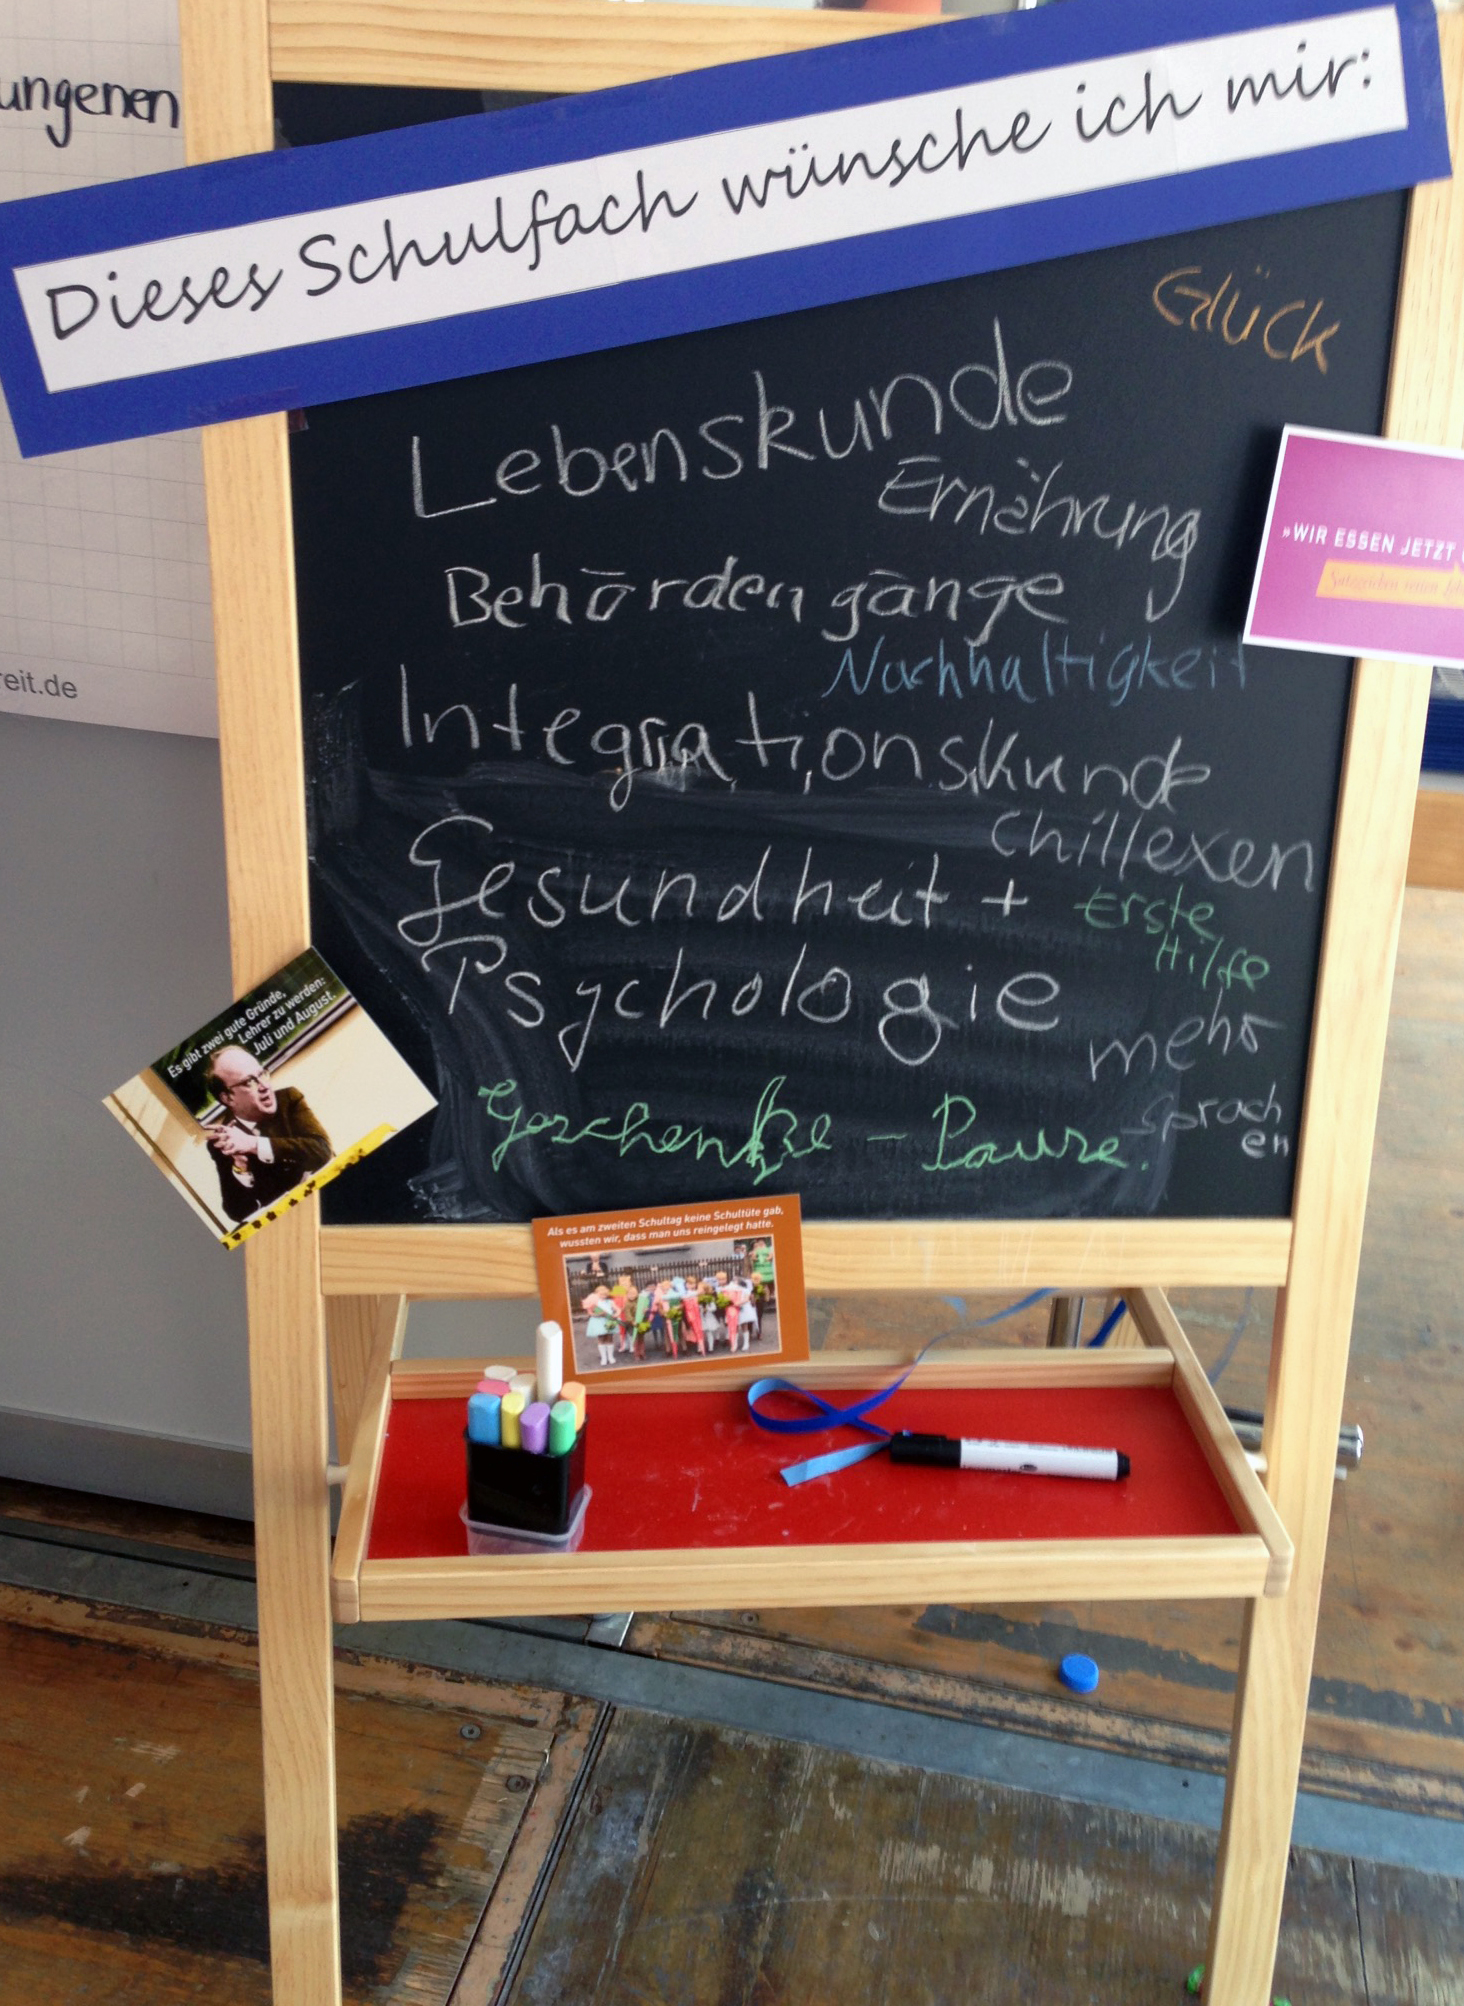 ungenen
Dieses Schulfach wünsche ich mir:
Glück
Lebenskunde
Ernährung
Behördengänge
Nachhaltigkeit
Integrationskunde
chillexen
Gesundheit +
Psychologie
Erste
Hilfe
mehr
sprach
en
Geschenke - Pause.
»WIR ESSEN JETZT
reit.de
Es gibt zwei gute Gründe,
Lehrer zu werden:
Juli und August.
Als es am zweiten Schultag keine Schultüte gab,
wussten wir, dass man uns reingelegt hatte.